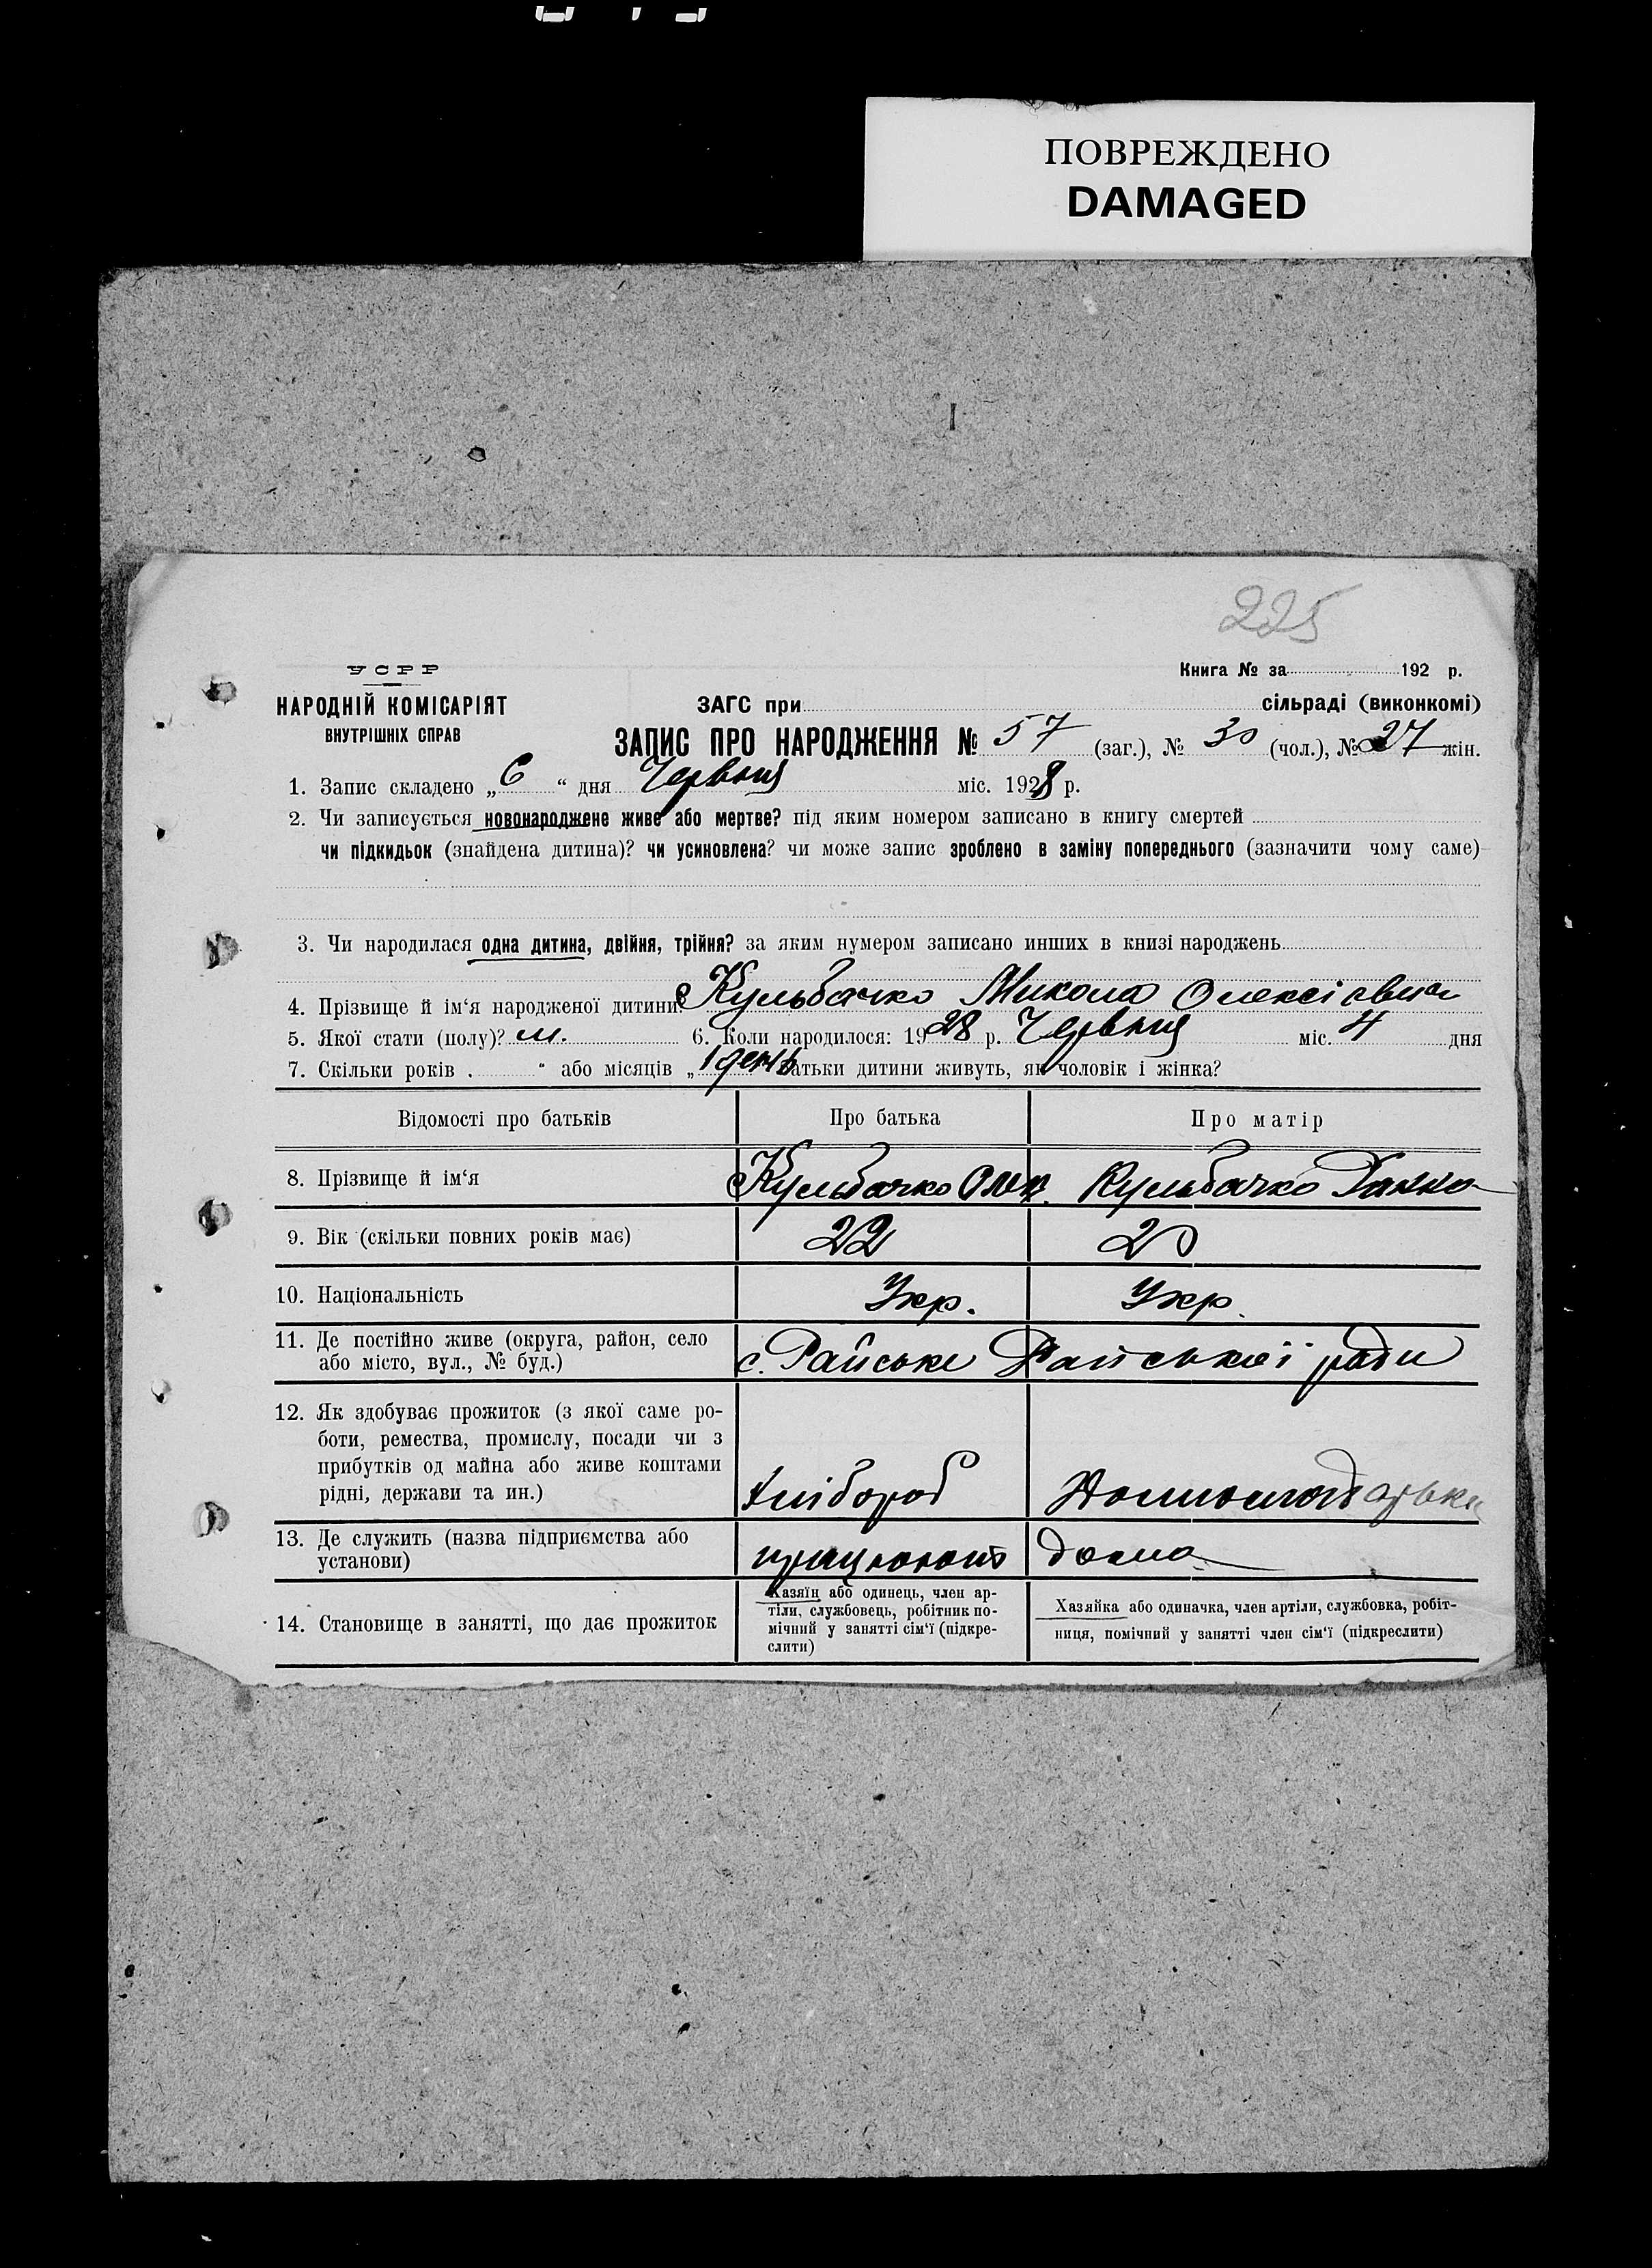 ПОВРЕЖДЕНО
DAMAGED
225
УСРР
Книга № за 192 р.
НАРОДНІЙ КОМІСАРІЯТ
ВНУТРІШНІХ СПРАВ
ЗАГС при сільраді (виконкомі)
ЗАПИС ПРО НАРОДЖЕННЯ № 57 (заг.), № 30 (чол.), № 27 жін.
1. Запис складено „6“ дня Червня міс. 1928 р.
2. Чи записується новонароджене живе або мертве? під яким номером записано в книгу смертей
чи підкидьок (знайдена дитина)? чи усиновлена? чи може запис зроблено в заміну попереднього (зазначити чому саме)
3. Чи народилася одна дитина, двійня, трійня? за яким нумером записано инших в книзі народжень
4. Прізвище й ім‘я народженої дитини: Кульбачко Микола Олексієвич
5. Якої стати (полу)? м. 6. Коли народилося: 1928 р. Червня міс. 4 дня
7. Скільки років . “ або місяців „1 день батьки дитини живуть, як чоловік і жінка?
Відомості про батьків Про батька Про матір
8. Прізвище й ім‘я Кульбачко Олек. Кульбачко Ганна
9. Вік (скільки повних років має) 22 20
10. Національність Укр. Укр.
11. Де постійно живе (округа, район, село
або місто, вул., № буд.) с. Райське Райської ради
12. Як здобуває прожиток (з якої саме ро-
боти, ремества, промислу, посади чи з
прибутків од майна або живе коштами
рідні, держави та ин.) хлібороб Домогосподарька
13. Де служить (назва підприємства або
установи) працюють дома
14. Становище в занятті, що дає прожиток
Хазяїн або одинець, член ар-
тіли, службовець, робітник по-
мічний у занятті сім‘ї (підкре-
слити)
Хазяйка або одиначка, член артіли, службовка, робіт-
ниця, помічний у занятті член сім‘ї (підкреслити)